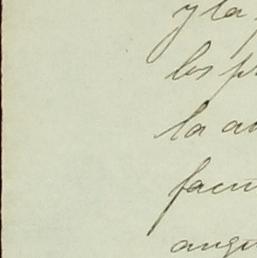 y la
los p
la a
facu
angu